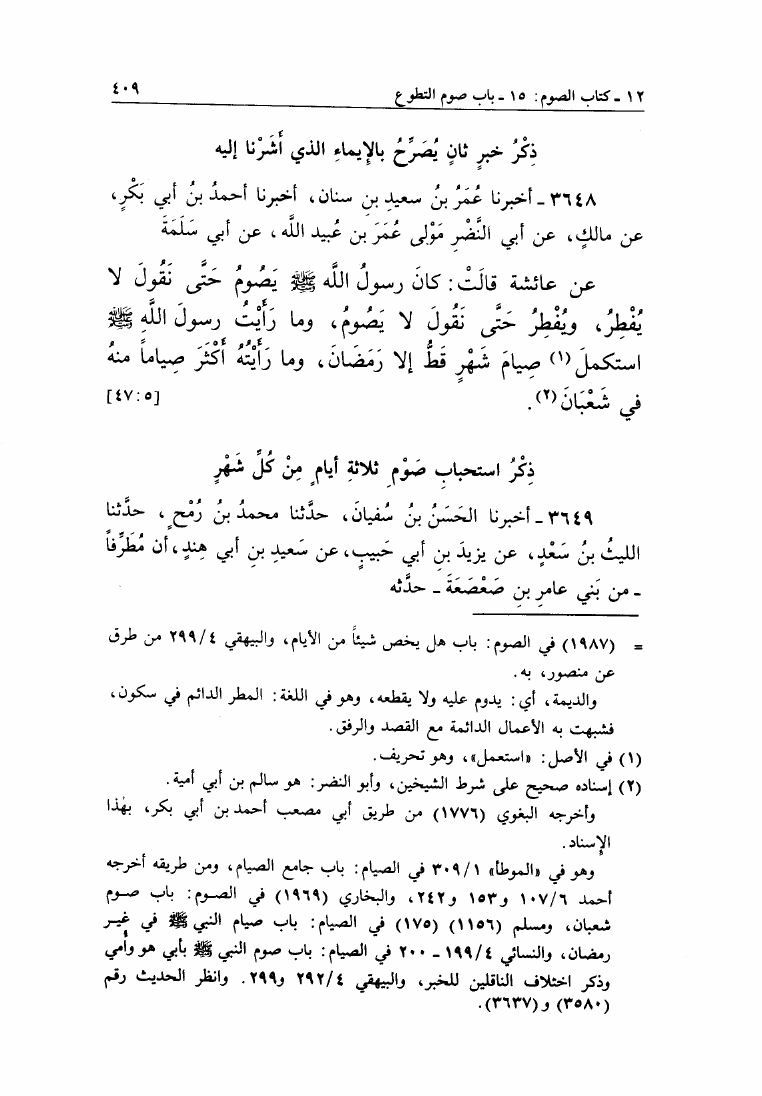 ١٢ - كتاب الصوم: ١٥ - باب صوم التطوع
٤٠٩
ذِكْرُ خبرٍ ثانٍ يُصَرِّحُ بالإِيماءِ الذي أَشَرْنا إليه
٣٦٤٨ - أخبرنا عُمَرُ بنُ سعيدِ بنِ سنان، أخبرنا أحمدُ بنُ أبي بَكْرٍ،
عن مالكٍ، عن أبي النَّضْرِ مَوْلى عُمَرَ بن عُبيد اللَّه، عن أبي سَلَمَةَ
عن عائشة قالَتْ: كانَ رسولُ الله ﷺ يَصُومُ حَتَّى نَقُولَ لا
يُفْطِرُ، ويُفْطِرُ حَتَّى نَقُولَ لا يَصُومُ، وما رَأَيْتُ رسولَ اللَّهِ ﷺ
استكملَ(١) صِيامَ شَهْرٍ قَطُّ إلا رَمَضَانَ، وما رَأَيْتُهُ أَكْثَرَ صِياماً منهُ
في شَعْبَانَ(٢). [٤٧:٥]
ذِكْرُ استحبابِ صَوْمِ ثلاثةِ أيامٍ مِنْ كُلِّ شَهْرٍ
٣٦٤٩ - أخبرنا الحَسَنُ بنُ سُفيانَ، حدَّثنا محمدُ بنُ رُمْحٍ، حدَّثنا
الليثُ بنُ سَعْدٍ، عن يزيدَ بنِ أبي حَبيبٍ، عن سَعيدِ بنِ أبي هِندٍ، أن مُطَرِّفاً
- من بَني عامرِ بنِ صَعْصَعَةَ - حدَّثه
= (١٩٨٧) في الصوم: باب هل يخص شيئاً من الأيام، والبيهقي ٢٩٩/٤ من طرق
عن منصور، به.
والديمة، أي: يدوم عليه ولا يقطعه، وهو في اللغة: المطر الدائم في سكون،
فشبهت به الأعمال الدائمة مع القصد والرفق.
(١) في الأصل: «استعمل»، وهو تحريف.
(٢) إسناده صحيح على شرط الشيخين، وأبو النضر: هو سالم بن أبي أمية.
وأخرجه البغوي (١٧٧٦) من طريق أبي مصعب أحمد بن أبي بكر، بهٰذا
الإِسناد.
وهو في «الموطأ» ٣٠٩/١ في الصيام: باب جامع الصيام، ومن طريقه أخرجه
أحمد ١٠٧/٦ و١٥٣ و٢٤٢، والبخاري (١٩٦٩) في الصوم: باب صوم
شعبان، ومسلم (١١٥٦) (١٧٥) في الصيام: باب صيام النبي ﷺ في غير
رمضان، والنسائي ١٩٩/٤ - ٢٠٠ في الصيام: باب صوم النبي ﷺ بأبي هو وأمي
وذكر اختلاف الناقلين للخبر، والبيهقي ٢٩٢/٤ و٢٩٩. وانظر الحديث رقم
(٣٥٨٠) و(٣٦٣٧).